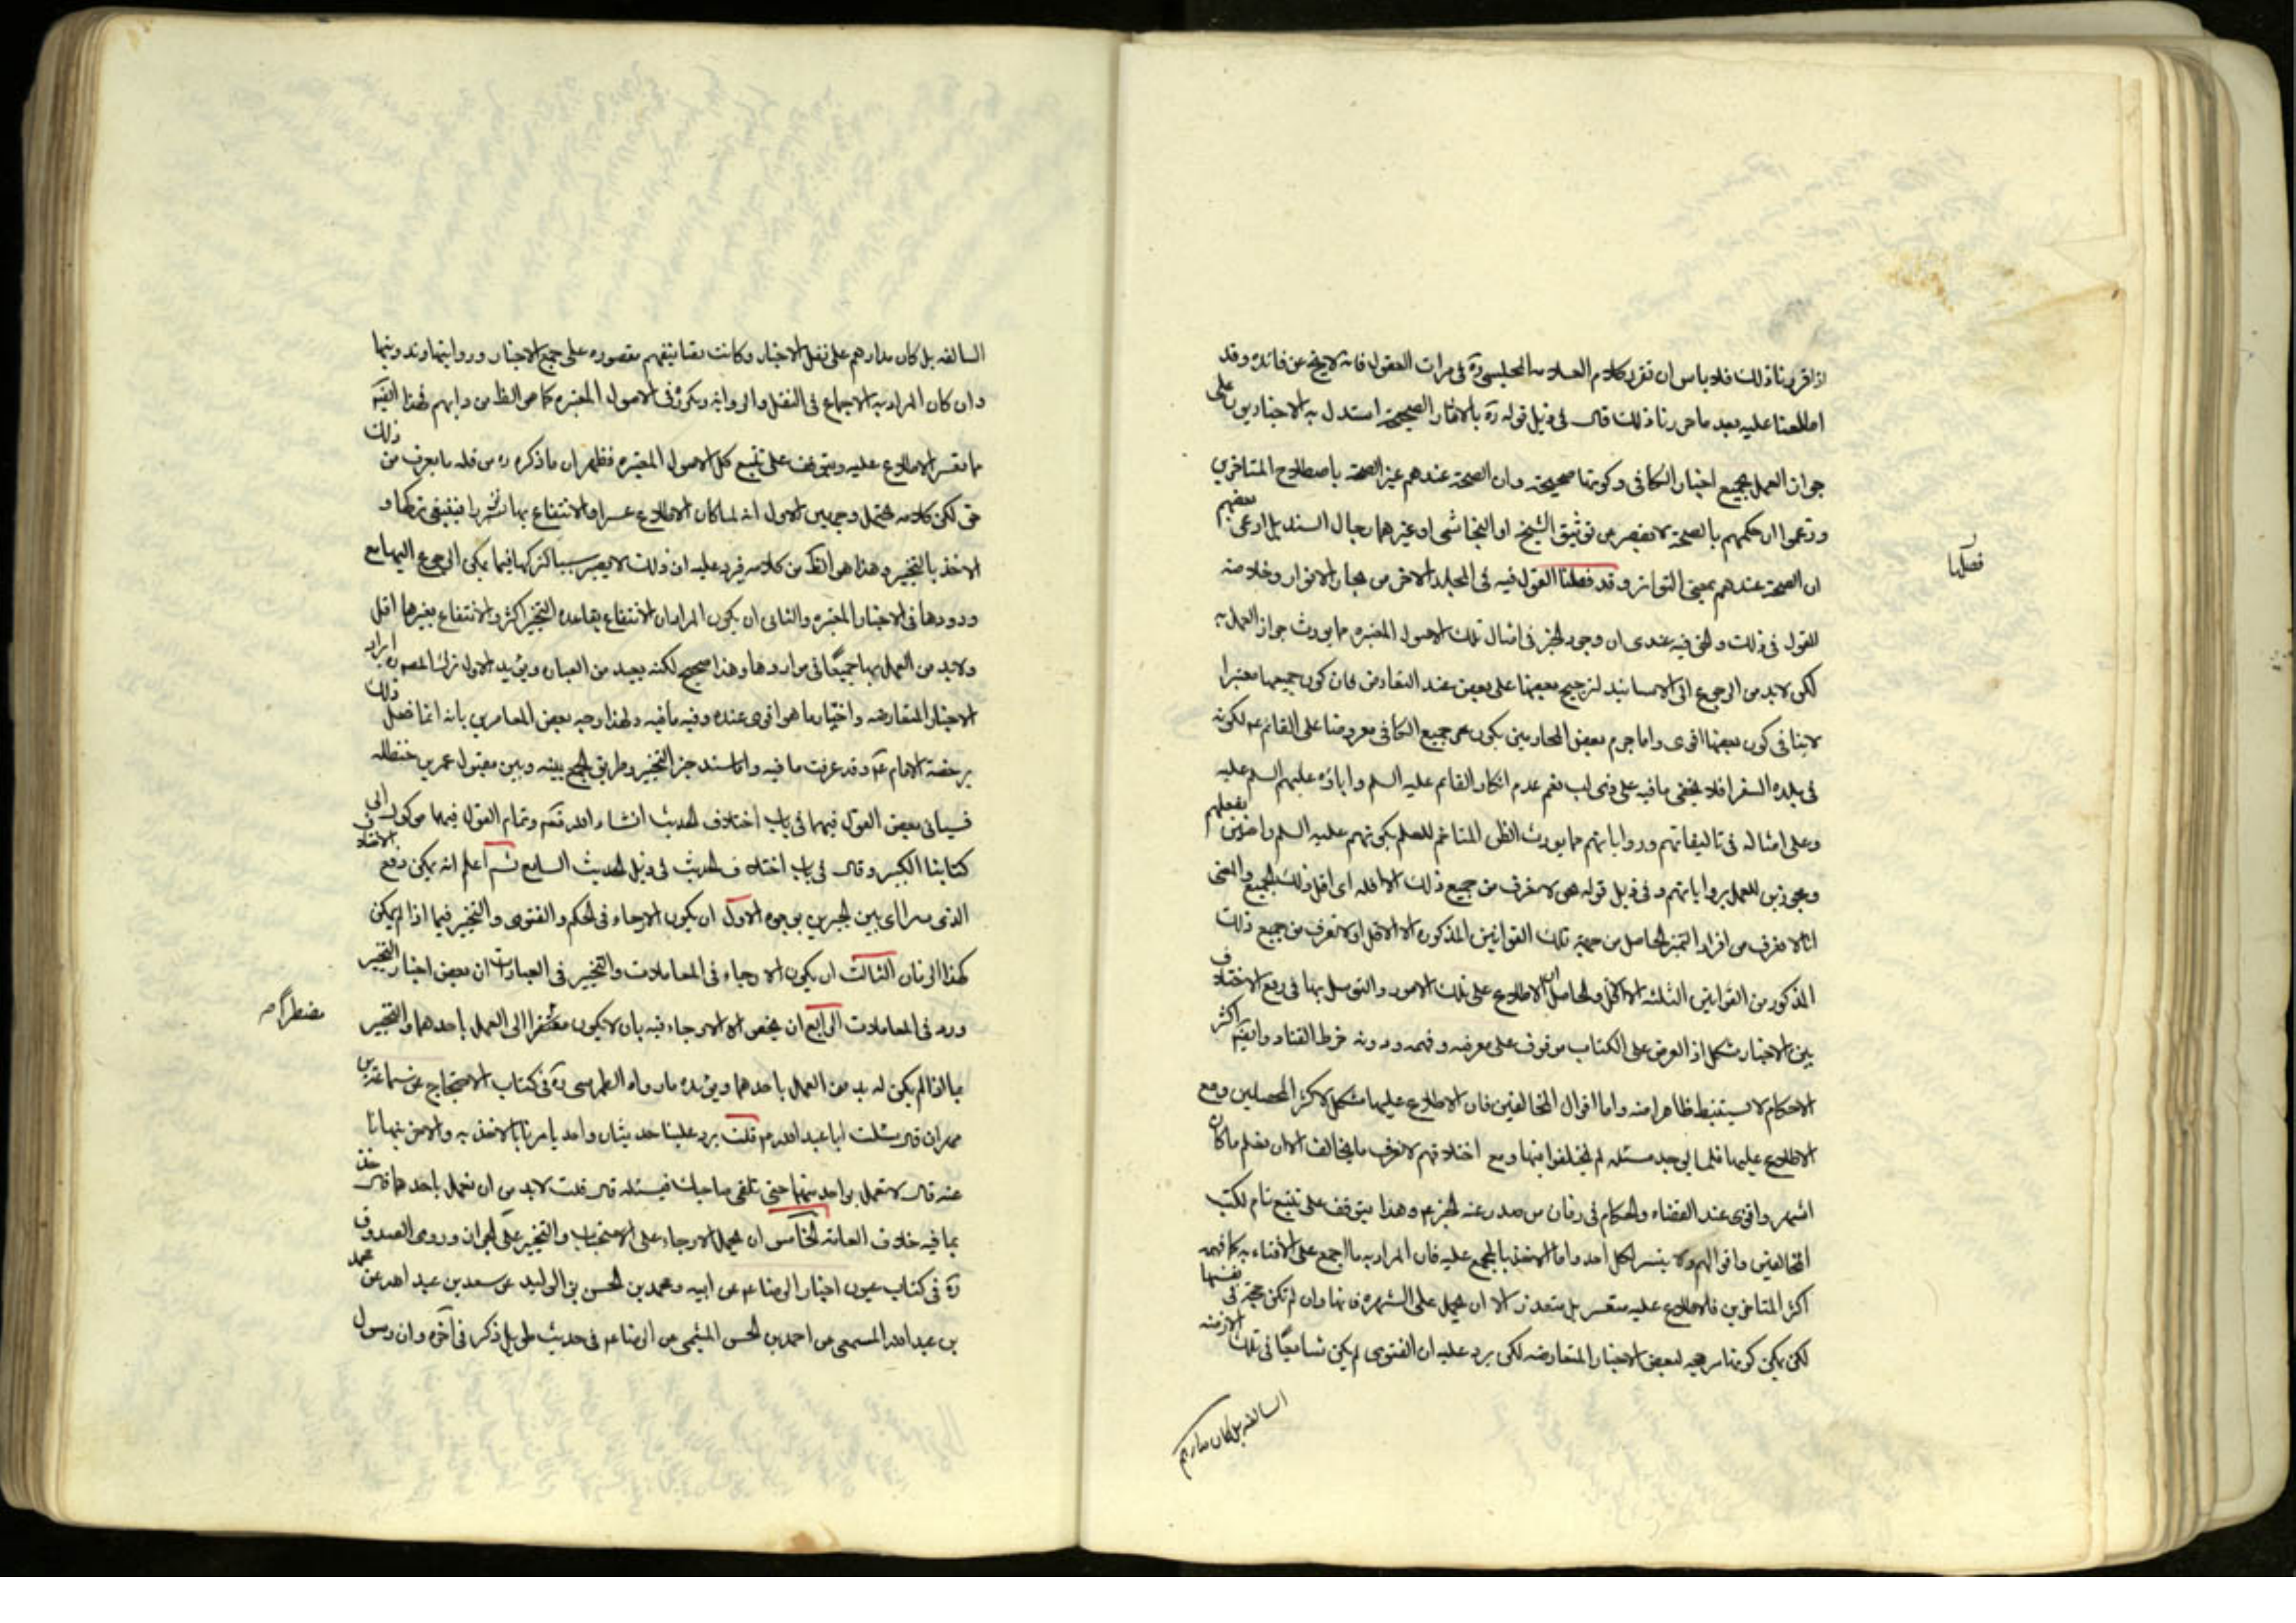 اذا قررنا ذلك فلا باس ان نقرر كلام العلامه المجلسي ره في مرات العقول فانه لا يخ عن فائده وقد
اطلعنا عليه بعد ما حررنا ذلك قال في ذيل قوله ره بالاثار الصحيحة استدل به الاخباريون على
جواز العمل بجميع اخبار الكافي وكونها صحيحه وان الصحة عندهم غير الصحة باصطلاح المتاخرين
وزعموا ان حكمهم بالصحة لا يقصر من توثيق الشيخ او النجاشي او غيرهما رجال السند بل ادعى بعضهم
ان الصحة عندهم بمعنى التواتر وقد فصلنا القول فيه في المجلد الاخر من بحار الانوار وخلاصة
فصلنا
القول في ذلك والحق فيه عندى ان وجود الخبر في امثال تلك الاصول المعتبره مما يورث جواز العمل به
لكن لا بد من الرجوع الى الاسانيد لترجيح بعضها على بعض عند التعارض فان كون جميعها معتبرا
لا ينافي كون بعضها اقوى واما جزم بعض المجازفين بكون جميع الكافي معروضا على القائم ع لكونه
في بلده السفرا فلا يخفى ما فيه على ذى لب نعم عدم انكار القائم عليه السلم واباؤه عليهم السلم عليه
وعلى امثاله في تاليفاتهم ورواياتهم مما يورث الظن المتاخم للعلم بكونهم عليه السلم راضين بفعلهم
ومجوزين للعمل برواياتهم وفي ذيل قوله نحن لا نعرف من جميع ذلك الا اقله اى اقل ذلك الجميع والمعنى
انا لا نعرف من افراد التميز الحاصل من جهة تلك القوانين المذكوره الا الاقل او لا نعرف من جميع ذلك
المذكور من القوانين الثلثه الا الاقل والحاصل ان الاطلاع على تلك الامور والتوسل بها في رفع الاختلاف
بين الاخبار مشكل اذ العرض على الكتاب موقوف على معرفته وفهمه ودونه خرط القتاد وايضا اكثر
الاحكام لا يستنبط ظاهرا منه واما اقوال المخالفين فان الاطلاع عليها مشكل لاكثر المحصلين ومع
الاطلاع عليها قلما يوجد مسئله لم يختلفوا فيها ومع اختلافهم لا نعرف ما يخالف الا ان نعلم ما كان
اشهر واقوى عند القضاه والحكام في زمان من صدر عنه الخبر ع وهذا يتوقف على تتبع تام لكتب
المخالفين واقوالهم ولا يتيسر لكل احد واما الاخذ بالمجمع عليه فان المراد به ما اجمع على الافتاء به كما فهمه
اكثر المتاخرين فالاطلاع عليه متعسر بل متعذر الا ان يحمل على الشهره فانها وان لم تكن حجة في نفسها
لكن يمكن كونها مرجحه لبعض الاخبار المتعارضه لكن يرد عليه ان الفتوى لم يكن شايعا في تلك الازمنه
السالفه بل كان مدارهم
السالفه بل كان مدارهم على نقل الاخبار وكانت تصانيفهم مقصوره على جمع الاخبار وروايتها وتدوينها
وان كان المراد به الاجماع في النقل والروايه وتكرره في الاصول المعتبره كما هو الظ من دابهم فهذا ايضا
مما يعسر الاطلاع عليه ويتوقف على تتبع كل الاصول المعتبره فظهر ان ما ذكره ره من قله ما يعرف من ذلك
حق لكن كلامه يحتمل وجهين الاول انه لما كان الاطلاع عسرا والانتفاع بها نزرا فينبغي تركها و
الاخذ بالتخيير وهذا هو الظ من كلامه فيرد عليه ان ذلك لا يصير سببا لتركها فيما يمكن الرجوع اليها مع
ورودها في الاخبار المعتبره والثاني ان يكون المراد ان الانتفاع بقاعدة التخيير اكثر والانتفاع بغيرها اقل
ولا بد من العمل بها جميعا في مواردها وهذا صحيح لكنه بعيد من العباره ويؤيد الاول ترك المصنف ايراد
الاخبار المتعارضه واختيار ما هو اقوى عنده وفيه ما فيه ولهذا وجه بعض المعاصرين بانه انما فعل ذلك
برخصة الامام ع وقد عرفت ما فيه واما سند خبر التخيير وطريق الجمع بينه وبين مقبول عمر بن حنظله
فسياتي بعض القول فيهما في باب اختلاف الحديث انشاء الله تعم وتمام القول فيهما موكول الى
كتابنا الكبير وقال في باب اختلاف الحديث في ذيل الحديث السابع ثم اعلم انه يمكن رفع الاختلاف
الذى يتراى بين الخبرين بوجوه الاول ان يكون الارجاء في الحكم والفتوى والتخيير فيما اذا لم يمكن
لهذا الزمان الثالث ان يكون الارجاء في المعاملات والتخيير في العبادات ان بعض اخبار التخيير
ورد في المعاملات الرابع ان يخص الارجاء فيه بان لا يكون مضطرا الى العمل باحدهما والتخيير
مضطرا
بما اذا لم يكن له بد من العمل باحدهما ويؤيده ما رواه الطبرسي ره في كتاب الاحتجاج عن سماعة بن
مهران قال سئلت ابا عبد الله ع قلت يرد علينا حديثان واحد يامرنا بالاخذ به والاخر ينهانا
عنه قال لا تعمل بواحد منهما حتى تلقى صاحبك فتسئله قال قلت لا بد من ان نعمل باحدهما قال خذ
بما فيه خلاف العامه الخامس ان يحمل الارجاء على الاستحباب والتخيير على الجواز وروى الصدوق
ره في كتاب عيون اخبار الرضا ع عن ابيه ومحمد بن الحسن بن الوليد عن سعد بن عبد الله عن محمد
بن عبد الله المسمعي عن احمد بن الحسن الميثمي عن الرضا ع في حديث طويل ذكر في آخره وان رسول